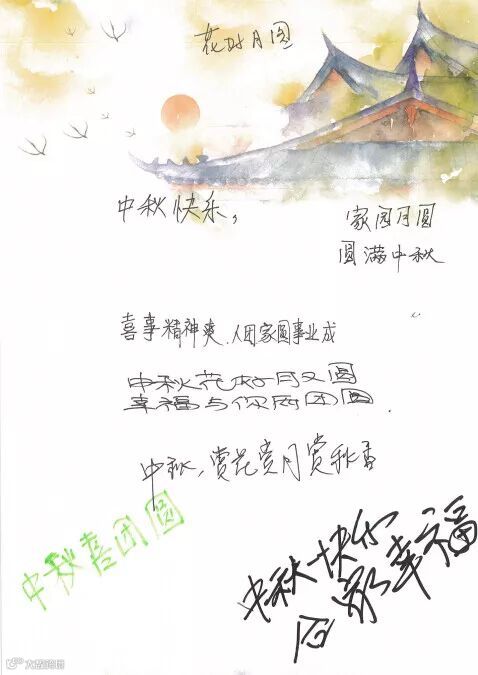 花好月圆
中秋快乐，
家园月圆
圆满中秋
喜事精神爽.人团家圆事业成
中秋花好月又圆
幸福与你两团圆.
中秋，赏花赏月赏秋香
中秋喜团圆
中秋快乐
合家幸福